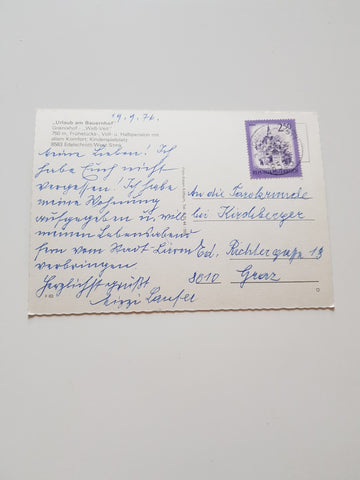 19.9.76.
„Urlaub am Bauernhof"
760 m, Frühstücks-, Voll- u. Halbpension mit
allem Komfort, Kinderspielplatz
8583 Edelschrott/West Stmk.
2.50
Meine Lieben! Ich
habe Euch nicht
vergessen! Ich habe
meine Wohnung
aufgegeben u. will
meinen Lebensabend
fern vom Stadt Lärm
verbringen.
Herzlichst grüßt
Laufer
An die Tarokrunde
bei Hirschberger
Ed. Richtergasse 13
8010 Graz